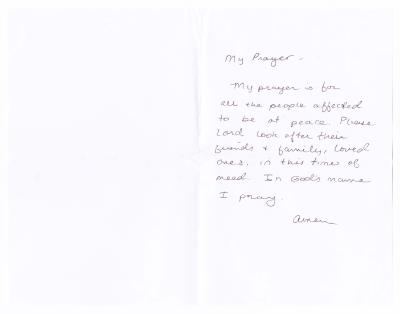 My Prayer -
My prayer is for
all the people affected
to be at peace. Please
Lord look after their
friends & family, loved
ones, in this times of
need. In God's name
I pray.
Amen